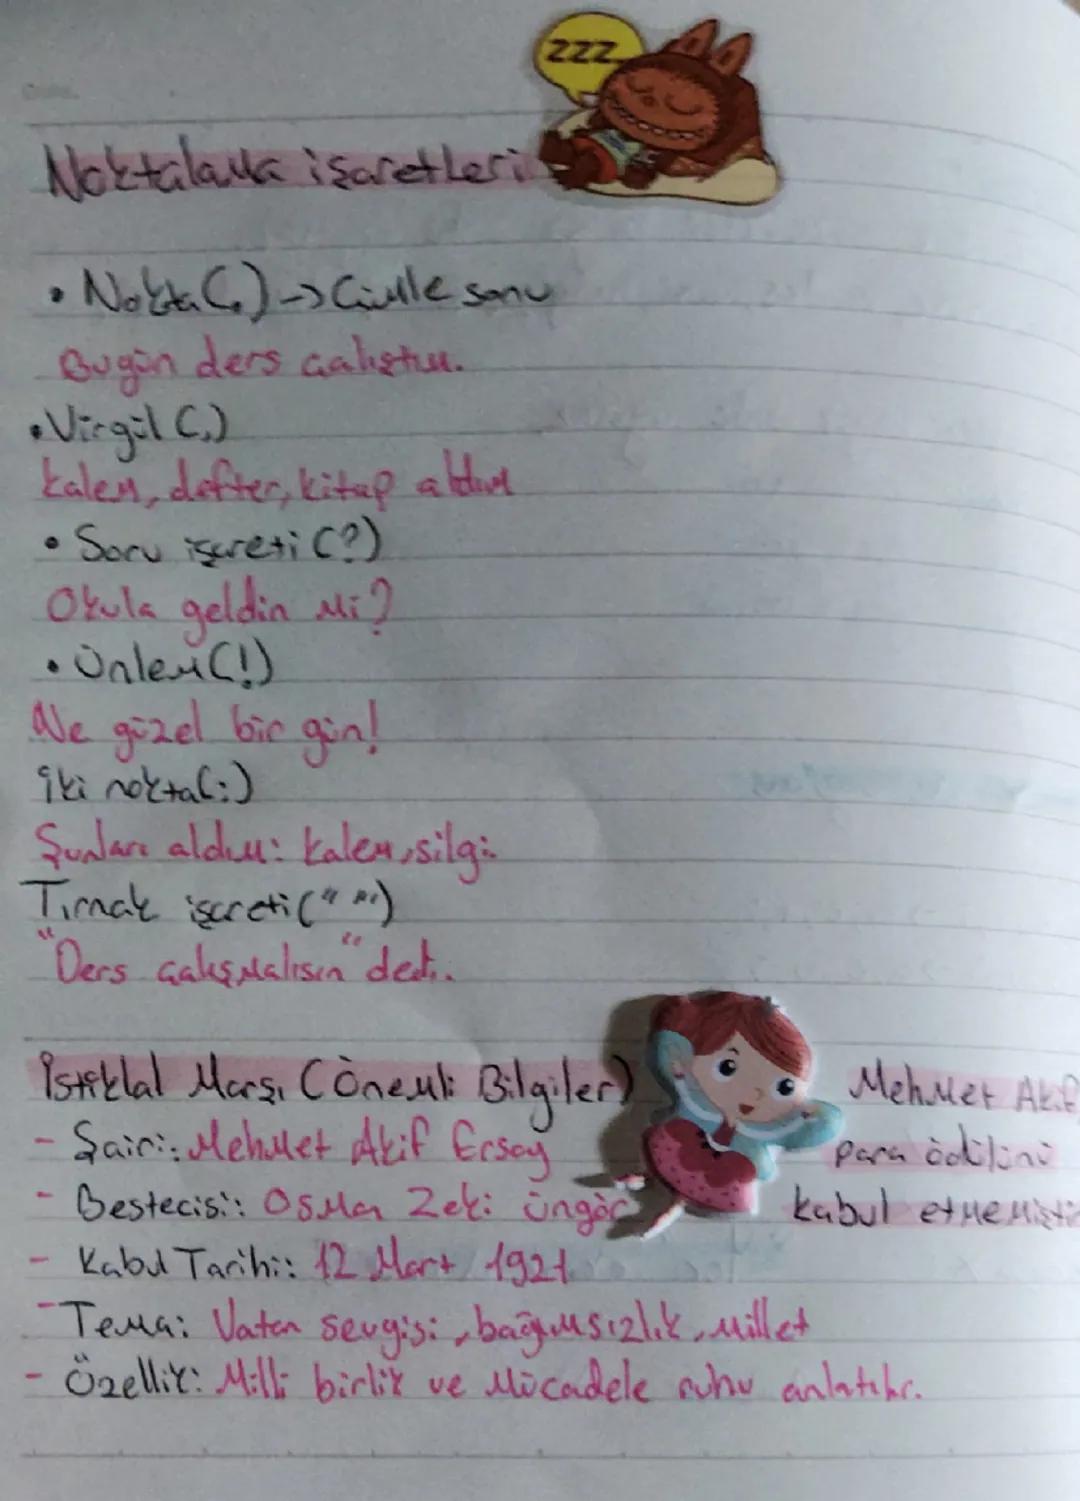 zzz
Noktalama işaretleri
• Nokta (.) -> Cümle sonu
Bugün ders çalıştım.
• Virgül (,)
kalem, defter, kitap aldım
• Soru işareti (?)
Okula geldin mi?
• Ünlem (!)
Ne güzel bir gün!
iki nokta (:)
Şunları aldım: kalem, silgi
Tırnak işareti (" ")
"Ders çalışmalısın" dedi.
İstiklal Marşı (Önemli Bilgiler)
- Şairi: Mehmet Akif Ersoy
- Bestecisi: Osman Zeki üngör
- Kabul Tarihi: 12 Mart 1921
- Tema: Vatan sevgisi, bağımsızlık, millet
- Özellik: Milli birlik ve mücadele ruhu anlatılır.
Mehmet Akif
para ödülünü
kabul etmemişti